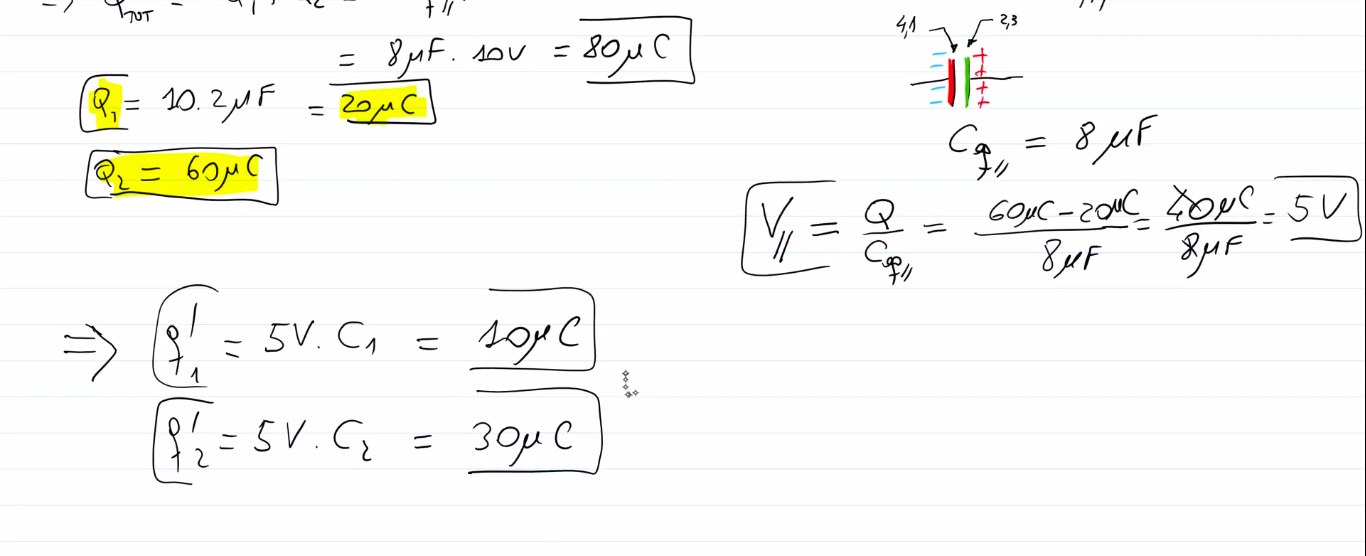 = 8μF. 10V = 80μC
Q₁ = 10.2μF = 20μC
Q₂ = 60μC
4,1 2,3
− − − −
+ + + +
C_eq// = 8 μF
V// = Q/C_eq// = (60μC − 20μC)/8μF = 40μC/8μF = 5V
⇒ q'₁ = 5V. C₁ = 10μC
q'₂ = 5V. C₂ = 30μC